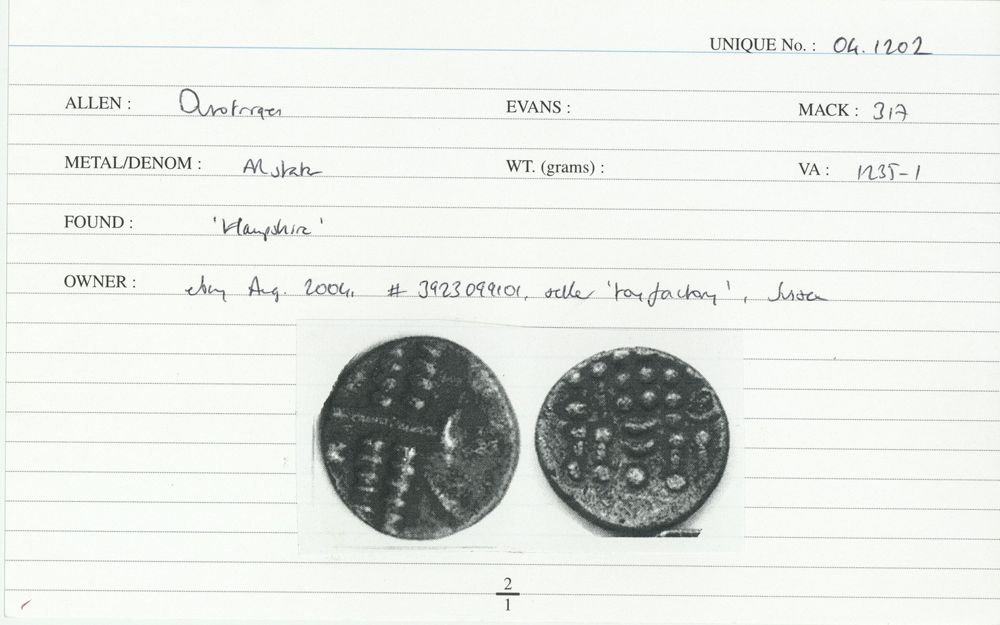 UNIQUE No. : 04.1202
ALLEN : Durotriges EVANS : MACK : 317
METAL/DENOM : AR stater WT. (grams) : VA : 1235-1
FOUND : 'Hampshire'
OWNER : ebay Aug. 2004, # 3923099101, seller 'toyfactory', Sussex
2
1